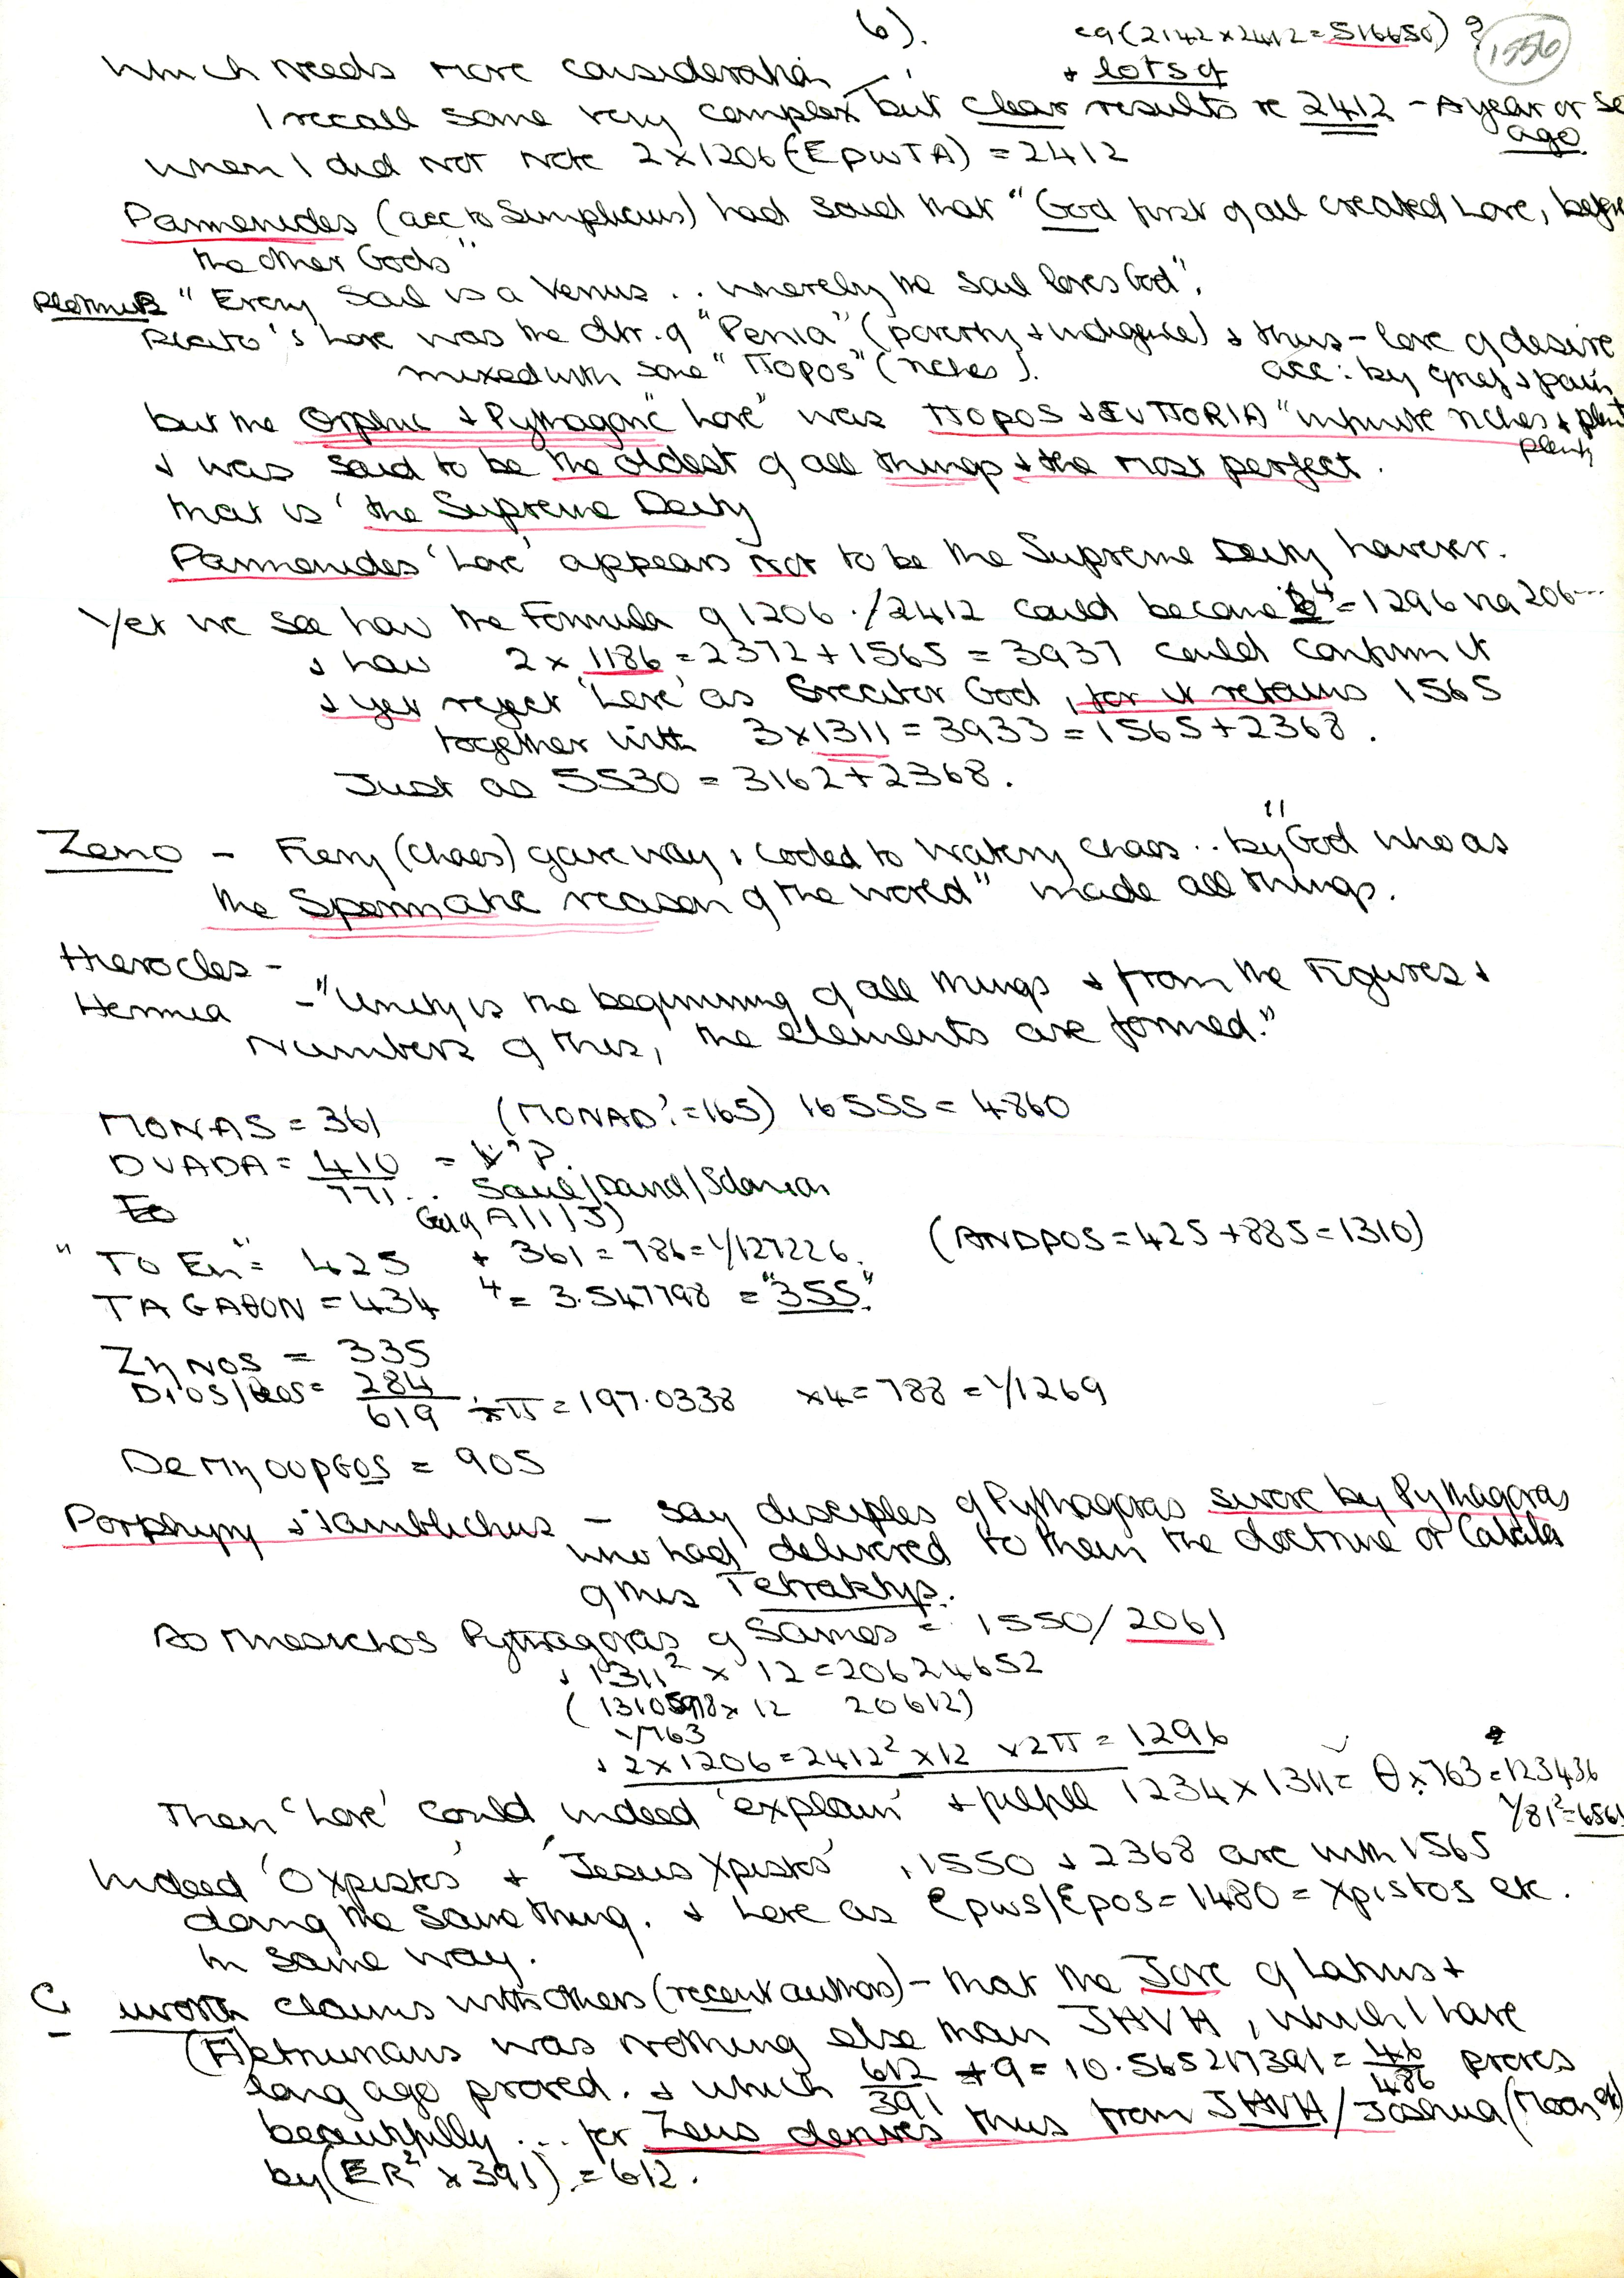 6).
eg (2142 x 2412 = 516650) ?
1556
which needs more consideration
+ lots of
I recall some very complex but clear results re 2412 - A year or so ago
when I did not note 2 x 1206 (EpwTA) = 2412
Parmenides (acc to Simplicius) had said that "God first of all created Love, before
the other Gods"
Plotinus "Every Soul is a Venus .. whereby the soul loves God".
Plato's Love was the dtr. of "Penia" (poverty + indigence) + thus - love of desire
mixed with some "ΠOpOS" (riches). acc: by grief + pain
but the Orphic + Pythagoric "Love" was ΠOpOS + EUΠORIA "infinite riches + plenty
plenty
+ was said to be the oldest of all things + the most perfect.
that is 'the Supreme Deity
Parmenides 'Love' appears not to be the Supreme Deity however.
Yet we see how the Formula of 1206 ./2412 could become 6⁴ = 1296 via 206...
+ how 2 x 1186 = 2372 + 1565 = 3937 could confirm it
+ yet reject 'Love' as Creator God, for it retains 1565
together with 3 x 1311 = 3933 = 1565 + 2368.
Just as 5530 = 3162 + 2368.
Zeno - Fiery (Chaos) gave way, cooled to watery chaos .. by "God who as
the Spermatic reason of the world" made all things.
Hierocles -
Hermia - "Unity is the beginning of all things + from the Figures +
Numbers of this, the elements are formed."
MONAS = 361 (MONAD? = 165) 16555 = 4860
DUADA = 410
771.. Saul/David/Solomon
Gag A/1/J)
"TO En" = 425 + 361 = 786 = 1/127226. (ANDpOS = 425 + 885 = 1310)
TAGAθON = 434 4 = 3.547798 = "355".
ZηNOS = 335
DiOS/θeos = 284
619 ÷π = 197.0338 x4 = 788 = 1/1269
DeMηOUpGOS = 905
Porphyry + Iamblichus - say disciples of Pythagoras swore by Pythagoras
who had delivered to them the doctrine or Cabala
of this Tetraktys.
As Mnesichos Pythagoras of Samos = 1550/2061
+ 1311² x 12 = 20624652
x 12 20612)
1/763
+ 2 x 1206 = 2412² x 12 x 2π = 1296
Then 'Love' could indeed 'explain' + fulfill 1234 x 1311 = θ x 763² = 123436
1/81² = 6561
Indeed 'O Xpistos' + 'Jesus Xpistos', 1550 + 2368 are with 1565
doing the same thing. + Love as Epws/Epos = 1480 = Xpistos etc.
in same way.
C. worth claims with others (recent authors) - that the Jove of Latins +
(H)etrurians was nothing else than JHVH, which I have
long ago proved. + which 612/391 + 9 = 10.565217391 = 486 proves
beautifully ... for Zeus derives thus from JHVH/Joshua (Moon etc)
by (ER² x 391) = 612.